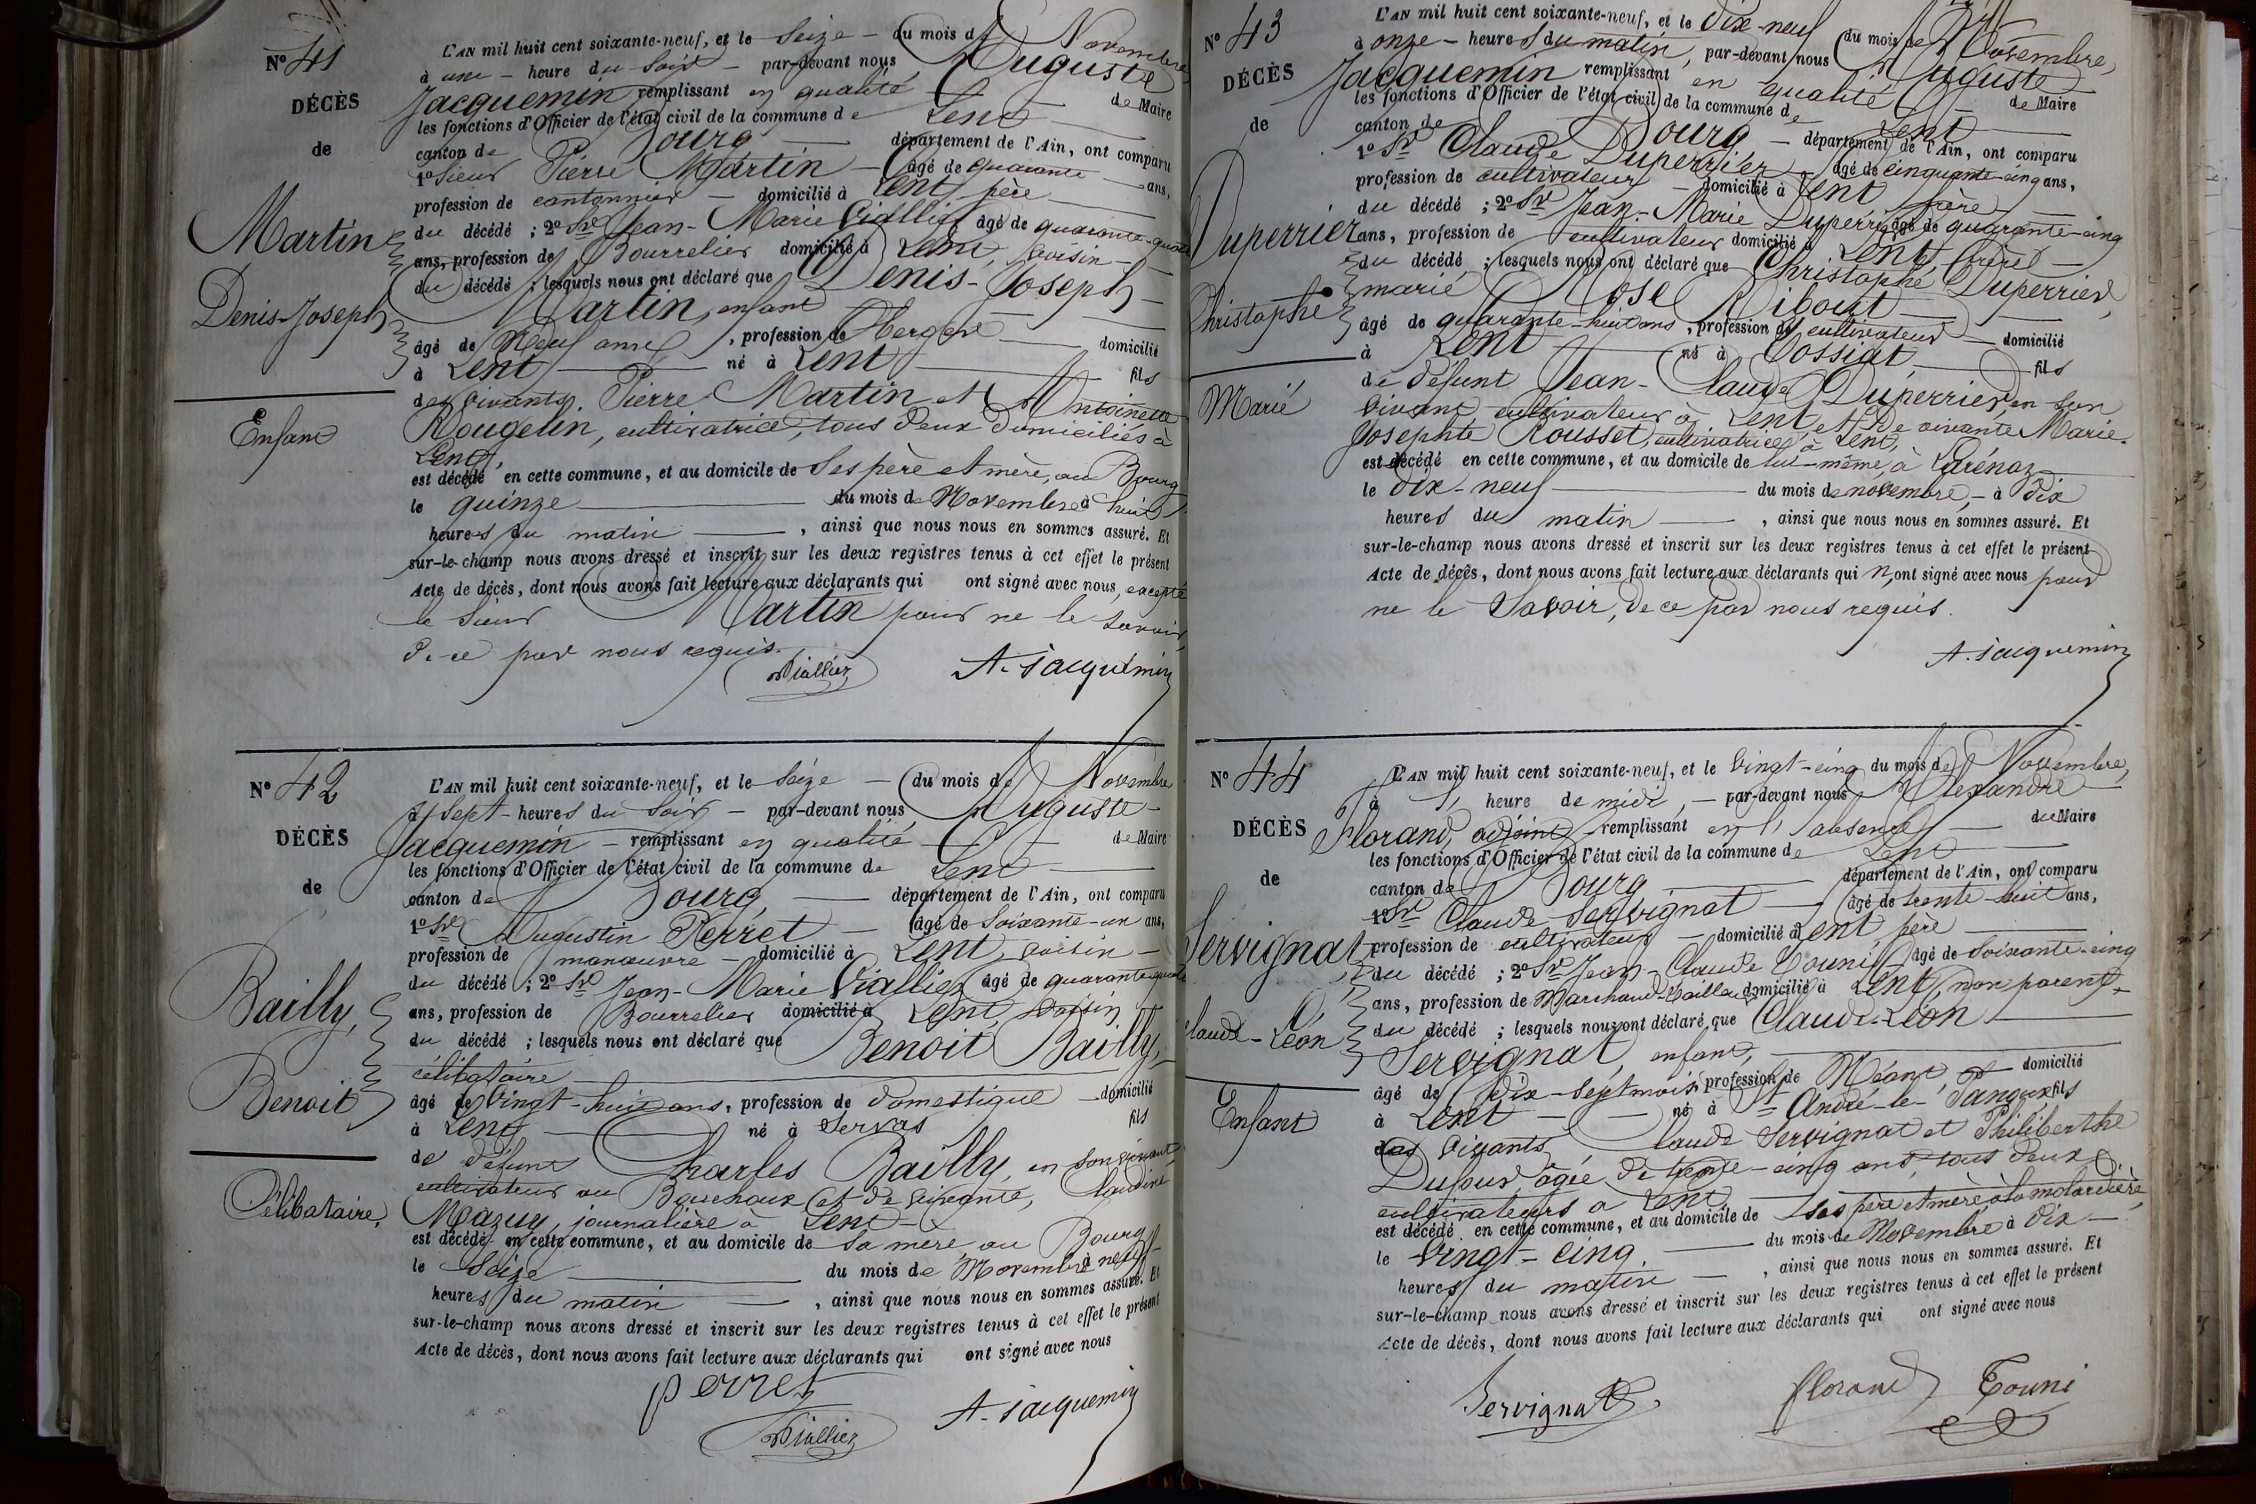 N° 41
DÉCÈS
de
Martin
Denis-Joseph
Enfant
L'AN mil huit cent soixante-neuf, et le Seize du mois de Novembre
à une heure du soir par-devant nous Auguste
Jacquemin remplissant en qualité de Maire
les fonctions d'Officier de l'état civil de la commune de Lent
canton de Bourg département de l'Ain, ont comparu
1° Sieur Pierre Martin âgé de quarante ans,
profession de cantonnier domicilié à Lent, père
du décédé ; 2° Sr Jean-Marie Viallier âgé de quarante-quatre
ans, profession de Bourrelier domicilié à Lent, voisin
du décédé ; lesquels nous ont déclaré que Denis-Joseph
Martin, enfant
âgé de Neuf ans, profession de Berger domicilié
à Lent né à Lent fils
des vivants Pierre Martin et Antoinette
Rougelin, cultivatrice, tous deux domiciliés à
Lent,
est décédé en cette commune, et au domicile de Ses père et mère, au Bourg
le quinze du mois de Novembre à huit
heures du matin, ainsi que nous nous en sommes assuré. Et
sur-le-champ nous avons dressé et inscrit sur les deux registres tenus à cet effet le présent
Acte de décès, dont nous avons fait lecture aux déclarants qui ont signé avec nous, excepté
le Sieur Martin pour ne le savoir,
de ce par nous requis.
Viallier A. Jacquemin
N° 42
DÉCÈS
de
Bailly,
Benoit
Célibataire.
L'AN mil huit cent soixante-neuf, et le Seize du mois de Novembre
à sept heures du Soir par-devant nous Auguste
Jacquemin remplissant en qualité de Maire
les fonctions d'Officier de l'état civil de la commune de Lent
canton de Bourg département de l'Ain, ont comparu
1° Sr Augustin Perret âgé de Soixante-un ans,
profession de manœuvre domicilié à Lent, voisin
du décédé ; 2° Sr Jean-Marie Viallier âgé de quarante-quatre
ans, profession de Bourrelier domicilié à Lent, voisin
du décédé ; lesquels nous ont déclaré que Benoit Bailly,
célibataire
âgé de Vingt-huit ans, profession de domestique domicilié
à Lent né à Servas fils
de défunt Charles Bailly, en son vivant
cultivateur au Bouchoux et de vivante, Claudine
Mazuy, journalière à Lent
est décédé en cette commune, et au domicile de Sa mère au Bourg
le Seize du mois de Novembre à neuf
heures du matin, ainsi que nous nous en sommes assuré. Et
sur-le-champ nous avons dressé et inscrit sur les deux registres tenus à cet effet le présent
Acte de décès, dont nous avons fait lecture aux déclarants qui ont signé avec nous
Perret
Viallier A. Jacquemin
N° 43
DÉCÈS
de
Duperrier
Christophe
Marié
L'AN mil huit cent soixante-neuf, et le Dix-neuf du mois de Novembre,
à onze heures du matin, par-devant nous Auguste
Jacquemin remplissant en qualité de Maire
les fonctions d'Officier de l'état civil de la commune de Lent
canton de Bourg département de l'Ain, ont comparu
1° Sr Claude Duperrier âgé de cinquante-cinq ans,
profession de cultivateur domicilié à Lent frère
du décédé ; 2° Sr Jean-Marie Duperrier âgé de quarante-cinq
ans, profession de cultivateur domicilié à Lent, frère
du décédé ; lesquels nous ont déclaré que Christophe Duperrier,
marié Rose Ribout
âgé de quarante-huit ans, profession de cultivateur domicilié
à Lent né à Cossiat fils
de défunt Jean-Claude Duperrier, en son
vivant cultivateur à Lent et de vivante Marie-
Josephte Rousset, cultivatrice à Lent,
est décédé en cette commune, et au domicile de lui-même, à Larénaz
le dix-neuf du mois de novembre, à dix
heures du matin, ainsi que nous nous en sommes assuré. Et
sur-le-champ nous avons dressé et inscrit sur les deux registres tenus à cet effet le présent
Acte de décès, dont nous avons fait lecture aux déclarants qui n'ont signé avec nous pour
ne le Savoir, de ce par nous requis.
A. Jacquemin
N° 44
DÉCÈS
de
Servignat
Claude-Léon
Enfant
L'AN mil huit cent soixante-neuf, et le Vingt-cinq du mois de Novembre,
à 1 heure de midi, par-devant nous Alexandre
Florand, adjoint remplissant en l'absence du Maire
les fonctions d'Officier de l'état civil de la commune de Lent
canton de Bourg département de l'Ain, ont comparu
1° Sr Claude Servignat âgé de trente-huit ans,
profession de cultivateur domicilié à Lent père
du décédé ; 2° Sr Jean-Claude Touni âgé de Soixante-cinq
ans, profession de Marchand-Tailleur domicilié à Lent, non parent
du décédé ; lesquels nous ont déclaré que Claude-Léon
Servignat, enfant,
âgé de dix-sept mois, profession de Néant domicilié
à Lent né à St André-le-Panoux fils
des vivants Claude Servignat et Philiberthe
Dufour âgée de trente-cinq ans tous deux
cultivateurs à Lent,
est décédé en cette commune, et au domicile de ses père et mère à la molardière,
le Vingt-cinq du mois de Novembre à Dix
heures du matin, ainsi que nous nous en sommes assuré. Et
sur-le-champ nous avons dressé et inscrit sur les deux registres tenus à cet effet le présent
Acte de décès, dont nous avons fait lecture aux déclarants qui ont signé avec nous
Servignat florand Touni